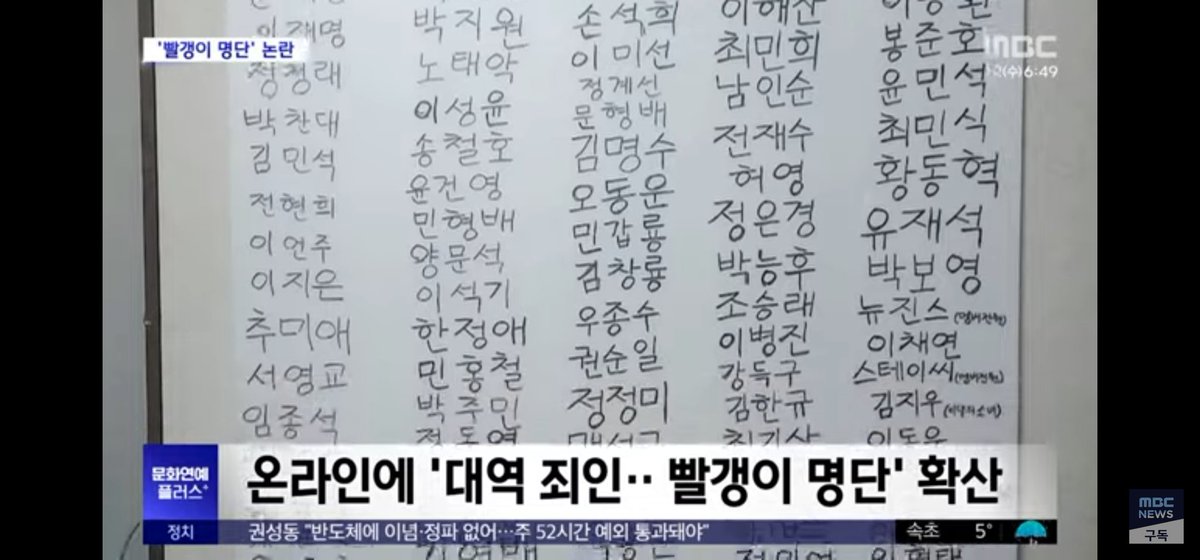 '빨갱이 명단' 논란
MBC
6:49
이재명
정청래
박찬대
김민석
전현희
이언주
이지은
추미애
서영교
임종석
박지원
노태악
이성윤
송철호
윤건영
민형배
양문석
이석기
한정애
민홍철
박주민
손석희
이미선
정계선
문형배
김명수
오동운
민갑룡
김창룡
우종수
권순일
정정미
이해찬
최민희
남인순
전재수
허영
정은경
박능후
조승래
이병진
강득구
김한규
봉준호
윤민석
최민식
황동혁
유재석
박보영
뉴진스(멤버전원)
이채연
스테이씨(멤버전원)
김지우
문화연예
플러스+
온라인에 '대역 죄인‥ 빨갱이 명단' 확산
정치
권성동 "반도체에 이념·정파 없어…주 52시간 예외 통과돼야"
속초 5°
MBC
NEWS
구독